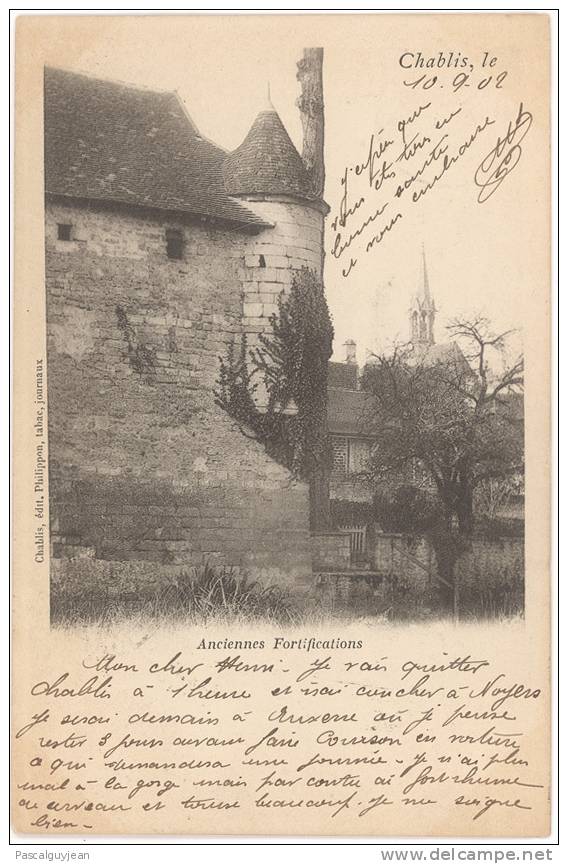 Chablis, le
10-9-02
j'espère que
vous êtes tous en
bonne santé
et vous embrasse
Chablis, édit. Philippon, tabac, journaux
Anciennes Fortifications
Mon cher Henri - Je vais quitter
Chablis à 1 heure et irai coucher à Noyers
Je serai demain à Auxerre où je pense
rester 3 jours devant faire Courson en voiture
ce qui demandera une journée - Je n'ai plus
mal à la gorge mais par contre ai fort rhume
de cerveau et tousse beaucoup. Je me soigne
bien -
Pascalguyjean
www.delcampe.net